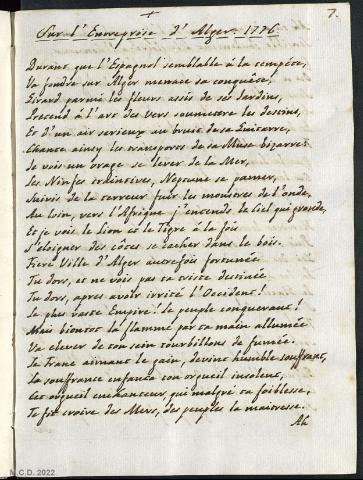 7.
Sur l'Entreprise d'Alger. 1776
Durant que l'Espagnol semblable à la tempête,
Va fondre sur Alger menace sa conquête!
Girard parmi les fleurs assis de ses Jardins,
Prétend à l'art des vers soumettre les destins,
Et d'un air serieux au bruit de sa Guitarre,
Chante ainsy les transports de sa Muse bizarre.
Je vois un orage se lever de la Mer,
Les Ninfes craintives, Neptune se pamer,
Suivis de la terreur fuir les monstres de l'onde,
Au loin, vers l'Afrique j'entends le Ciel qui gronde,
Et je vois le Lion et le Tigre à la fois
S'eloigner des côtes se cacher dans le bois.
Fiere Ville d'Alger autrefois fortunée
Tu dors, et ne vois pas ta triste destinée
Tu dors, apres avoir irrité l'Occident!
Le plus vaste Empire! Le peuple conquerant!
Mais bientot la flamme par sa main allumée
Va elever de ton sein tourbillons de fumée.
Le Franc aimant le gain, devint humble souffrant,
La souffrance enfanta ton orgueil insolent,
Cet orgueil enchanteur, qui malgré ta foiblesse,
Te fit croire des Mers, des peuples la maitresse.
Ah
M.C.D. 2022